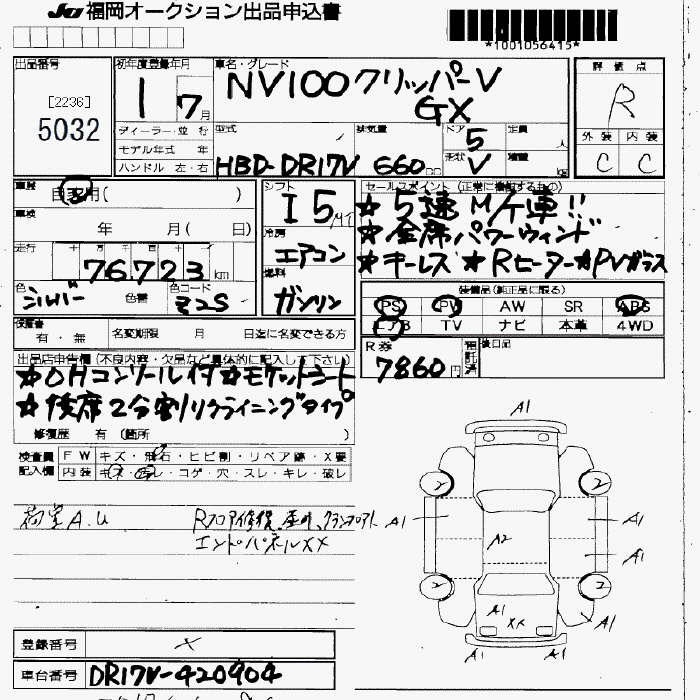 JU 福岡オークション出品申込書
*1001056415*
出品番号
[2236]
5032
初年度登録年月
1 7月
車名・グレード
NV100クリッパーV
GX
評価点
R
外装 内装
C C
ディーラー・並行
モデル年式 年
ハンドル 左・右
型式
HBD-DR17V
排気量
660cc
ドア
5
形状
V
定員
人
積量
kg
車歴
自家用( )
車検
年 月( 日)
走行
十 万 千 百 十 一
76,723km
色
シルバー
色替
色コード
Z2S
シフト
I5
冷房
エアコン
燃料
ガソリン
セールスポイント(正常に機能するもの)
★5速M/T車!!
★全席パワーウィンド
★キーレス ★Rヒーター★PVガラス
装備品(純正品に限る)
PS PW AW SR ABS
エアB TV ナビ 本革 4WD
保証書
有・無
名変期限 月 日迄に名変できる方
R券
7860円
預託済
後日品
出品店申告欄(不良内容・欠品など具体的に記入して下さい)
★OHコンソール付★モケットシート
★後席2分割リクライニングタイプ
修復歴 有(箇所 )
検査員記入欄
FW キズ・飛石・ヒビ割・リペア跡・X要
内装 キズ・汚レ・コゲ・穴・スレ・キレ・破レ
荷室A.U
Rフロア修復、
エンドパネルXX
A1
2 2
A1 A1
A2 A1
2 2
A1
XX A1
A1 A1
登録番号
車台番号 DR17V-420904